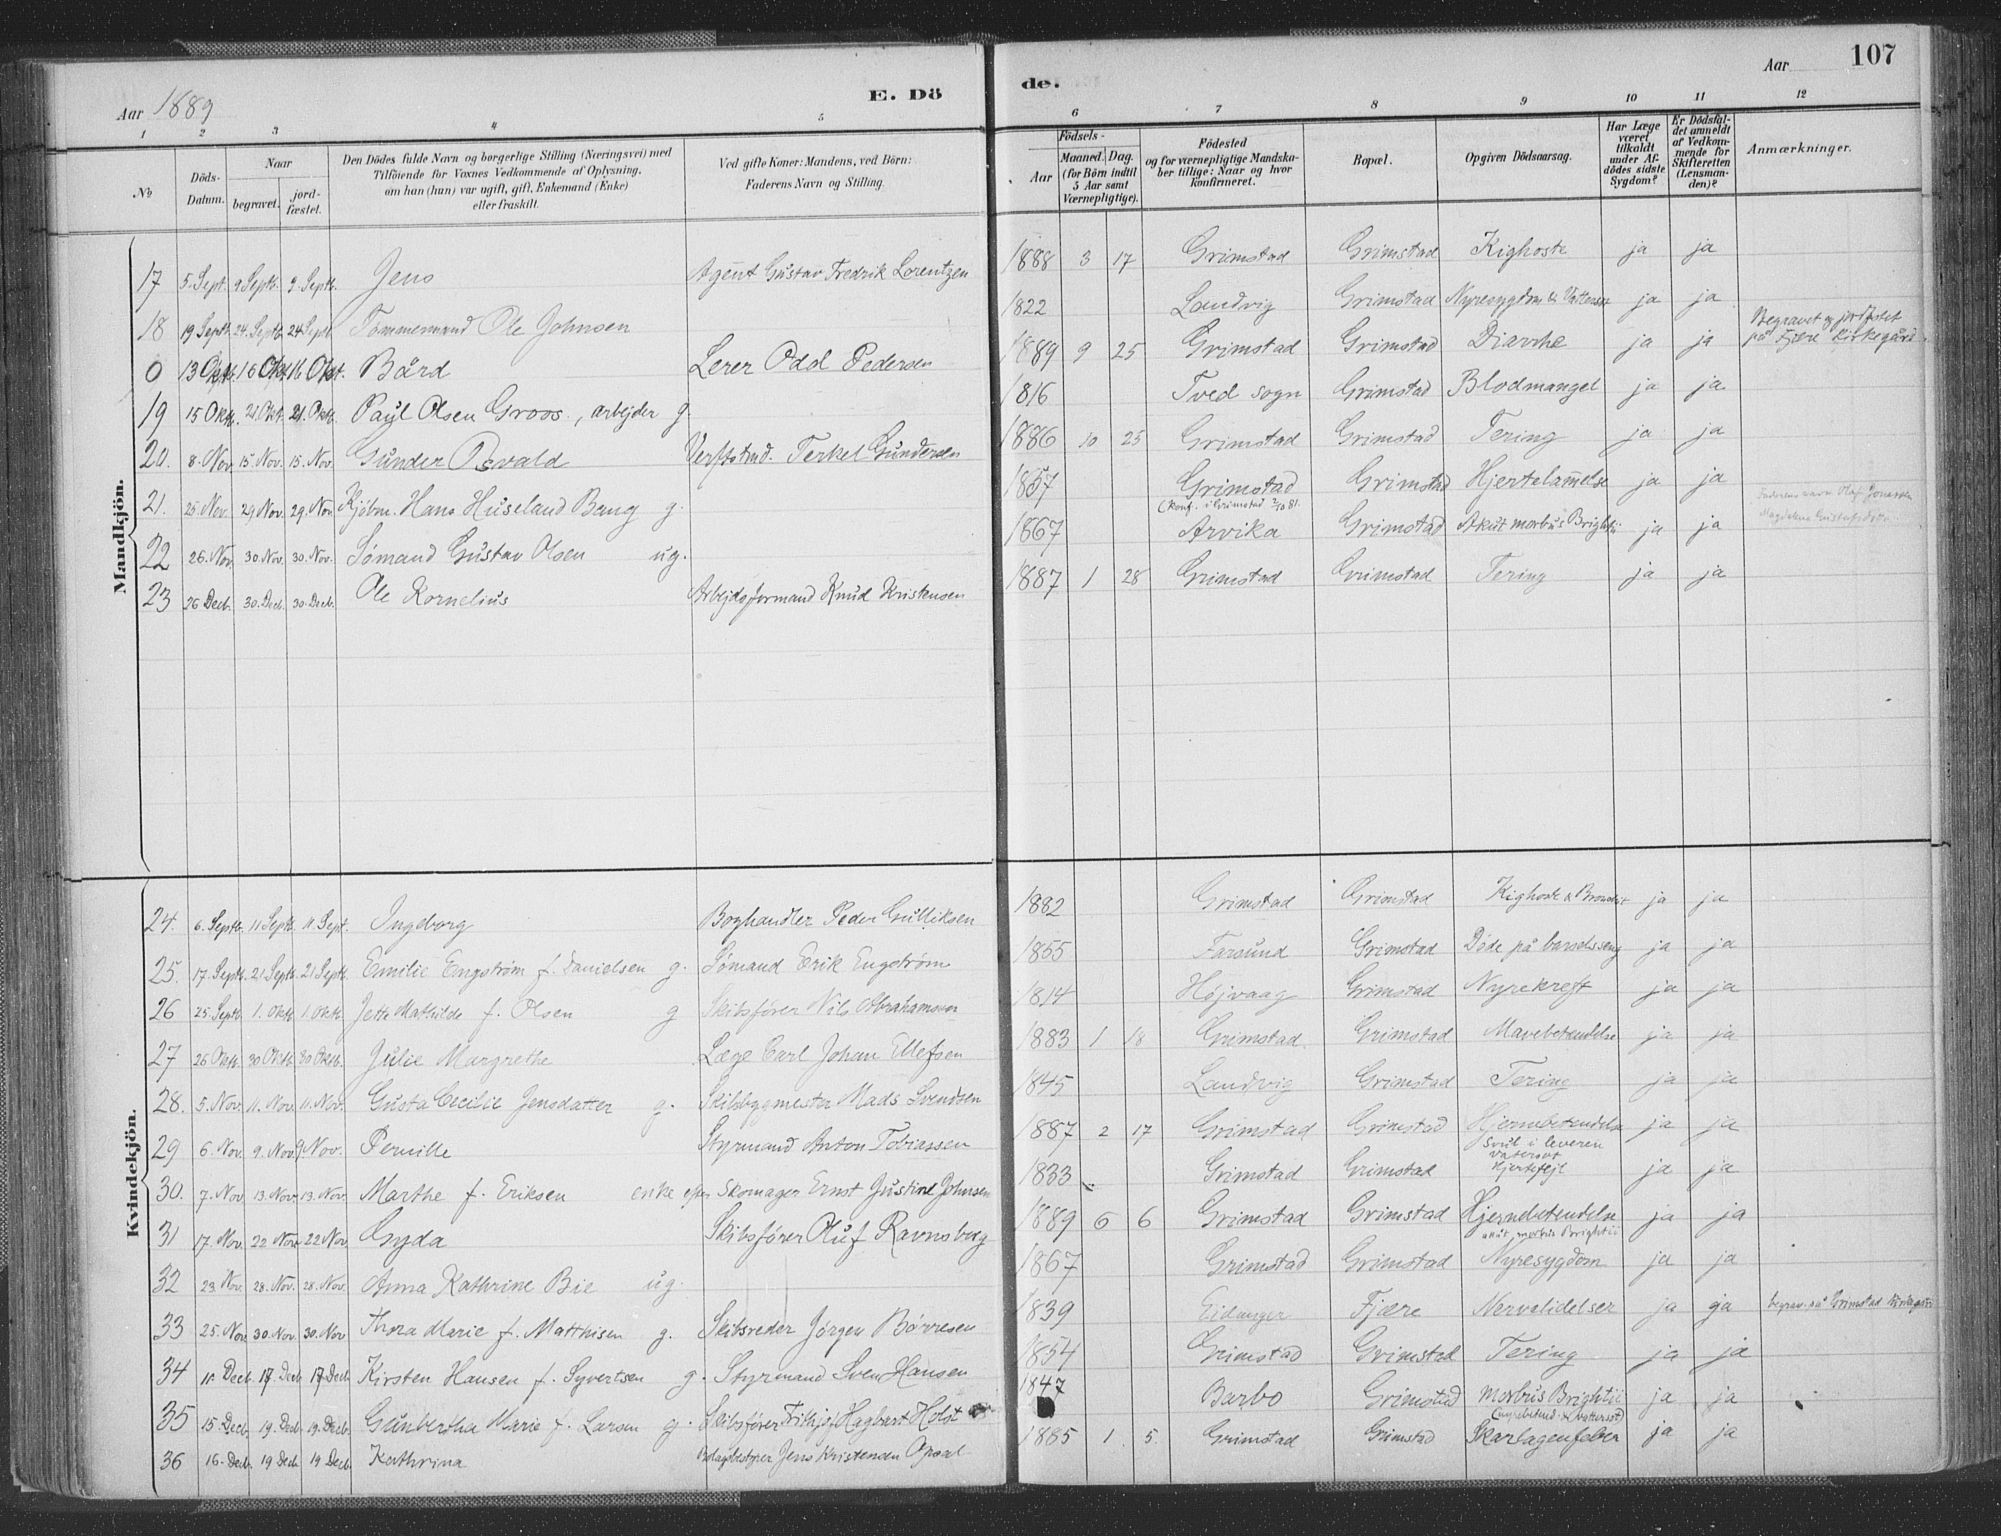 Aar 1889
E. Dö
de.
Aar
107
1 2 3 4 5 6 7 8 9 10 11 12
№
Döds-Datum.
Naar
begravet.
jord-fæstet.
Den Dödes fulde Navn og borgerlige Stilling (Næringsvei) med
Tilföiende for Voxnes Vedkommende af Oplysning,
om han (hun) var ugift, gift, Enkemand (Enke)
eller fraskilt.
Ved gifte Koner: Mandens, ved Börn:
Faderens Navn og Stilling.
Födsels-
Aar
Maaned. Dag.
(for Börn indtil
5 Aar samt
Værnepligtige).
Födested
og for værnepligtige Mandska-
ber tillige: Naar og hvor
konfirmeret.
Bopæl.
Opgiven Dödsaarsag.
Har Læge
været
tilkaldt
under Af-
dödes sidste
Sygdom?
Er Dödsfal-
det anmeldt
af Vedkom-
mende for
Skifteretten
(Lensman-
den)?
Anmærkninger.
Mandkjön.
17 5. Sept. 9 Septb. 9 Septb. Jens Agent Gustav Fredrik Lorentzen 1888 3 17 Grimstad Grimstad Kighoste ja ja
18 19 Septb. 24. Septb. 24 Sept. Tømmermand Ole Johnsen 1822 Landvig Grimstad Nyresygdom & Vattersot ja ja
0 13 Oktb. 16 Okt. 16. Okt. Bård Lerer Odd Pedersen 1889 9 25 Grimstad Grimstad Diarrhe ja ja Begravet og jordfæstet på Fjære Kirkegård.
19 15 Oktb. 21. Okt. 21. Okt. Paul Olsen Groos, arbejder g. 1816 Tved sogn Grimstad Blodmangel ja ja
20. 8. Nov. 15. Nov. 15. Nov. Gunder Osvald Verftstmd. Terkel Gundersen 1886 10 25 Grimstad Grimstad Tering ja ja
21. 25. Nov. 29 Nov. 29. Nov. Kjøbm. Hans Huseland Bang g. 1857 Grimstad Grimstad Hjertelammelse ja ja
22 26. Nov. 30. Nov. 30. Nov. Sømand Gustav Olsen ug. (Konf. i Grimstad 2/10 81. 1867 Arvika Grimstad Akut morbus Brightii ja ja Faderens navn Olaf Jonassen
Magdalena Gustafsdotter
23 26 Decb. 30. Decb. 30. Decb. Ole Kornelius Arbejdsformand Knud Kristensen 1887 1 28 Grimstad Grimstad Tering ja ja
Kvindekjön.
24. 6. Septb. 11 Septb. 11. Sept. Ingeborg Boghandler Peder Gulliksen 1882 Grimstad Grimstad Kighoste & Bronchit ja ja
25. 17. Septb. 21 Septb. 21 Septb. Emilie Engstrøm f. Danielsen g. Sømand Erik Engstrøm 1855 Farsund Grimstad Døde på barselsseng ja ja
26 25 Septb. 1. Oktb. 1. Oktb. Jette Mathilde f. Olsen g Skibsfører Nils Abrahamsen 1814 Højvaag Grimstad Nyrekreft ja ja
27 26 Oktb. 30 Oktb. 30 Oktb. Julie Margrethe Læge Carl Johan Ellefsen 1883 1 18 Grimstad Grimstad Mavebetendelse ja ja
28. 5. Nov. 11. Nov. 11. Nov. Gusta Cecilie Jensdatter g. Skibsbygmester Mads Svendsen 1845 Landvig Grimstad Tering ja ja
29 6. Nov. 9. Nov. 9 Nov. Pernille Styrmand Anton Tobiassen 1887 2 17 Grimstad Grimstad Hjernebetendelse ja ja
30. 7. Nov. 13. Nov. 13. Nov. Marthe f. Eriksen enke efter Skomager Ernst Justine Johnsen 1833 Grimstad Grimstad Svul i leveren Vatersot Hjertefejl ja ja
31 17. Nov. 22 Nov. 22 Nov. Gyda Skibsfører Oluf Ravnsberg 1889 6 6 Grimstad Grimstad Hjernebetendelse ja ja
32 23. Nov. 28. Nov. 28. Nov. Anna Kathrine Bie ug. 1867 Grimstad Grimstad akut morbus Brightii Nyresygdom ja ja
33 25. Nov. 30. Nov. 30. Nov. Thora Marie f. Matthisen g. Skibsreder Jørgen Børresen 1839 Eidanger Fjære Nervelidelser ja ja begrav. på Grimstad Kirkegård
34 11. Decb. 17 Decb. 17 Decb. Kirsten Hansen f. Syvertsen g. Styrmand Sven Hansen 1854 Grimstad Grimstad Tering ja ja
35 15. Decb. 19. Decb. 19. Decb. Gunbertha Marie f. Larsen g. Skibsfører Frithjof Hagbart Holst 1847 Barbo Grimstad Morbus Brightii (nyrebetend. & vattersot) ja ja
36 16. Decb. 19 Decb. 19 Decb. Kathrina Jens Kristensen Opsal 1885 1 5. Grimstad Grimstad Skarlagenfeber ja ja